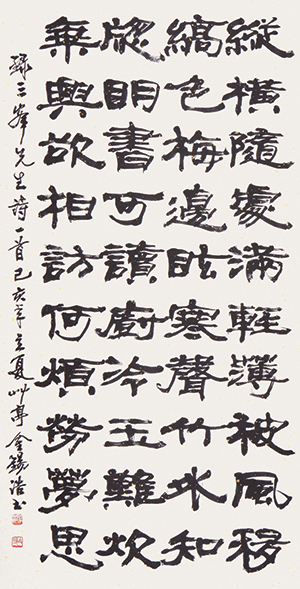 縱橫隨處滿輕薄被風移
縞色梅邊眩寒聲竹外知
牕明書可讀廚冷玉難炊
無興欲相訪何煩勞夢思
錄三峯先生詩一首己亥年立夏艸亭金錫浩书